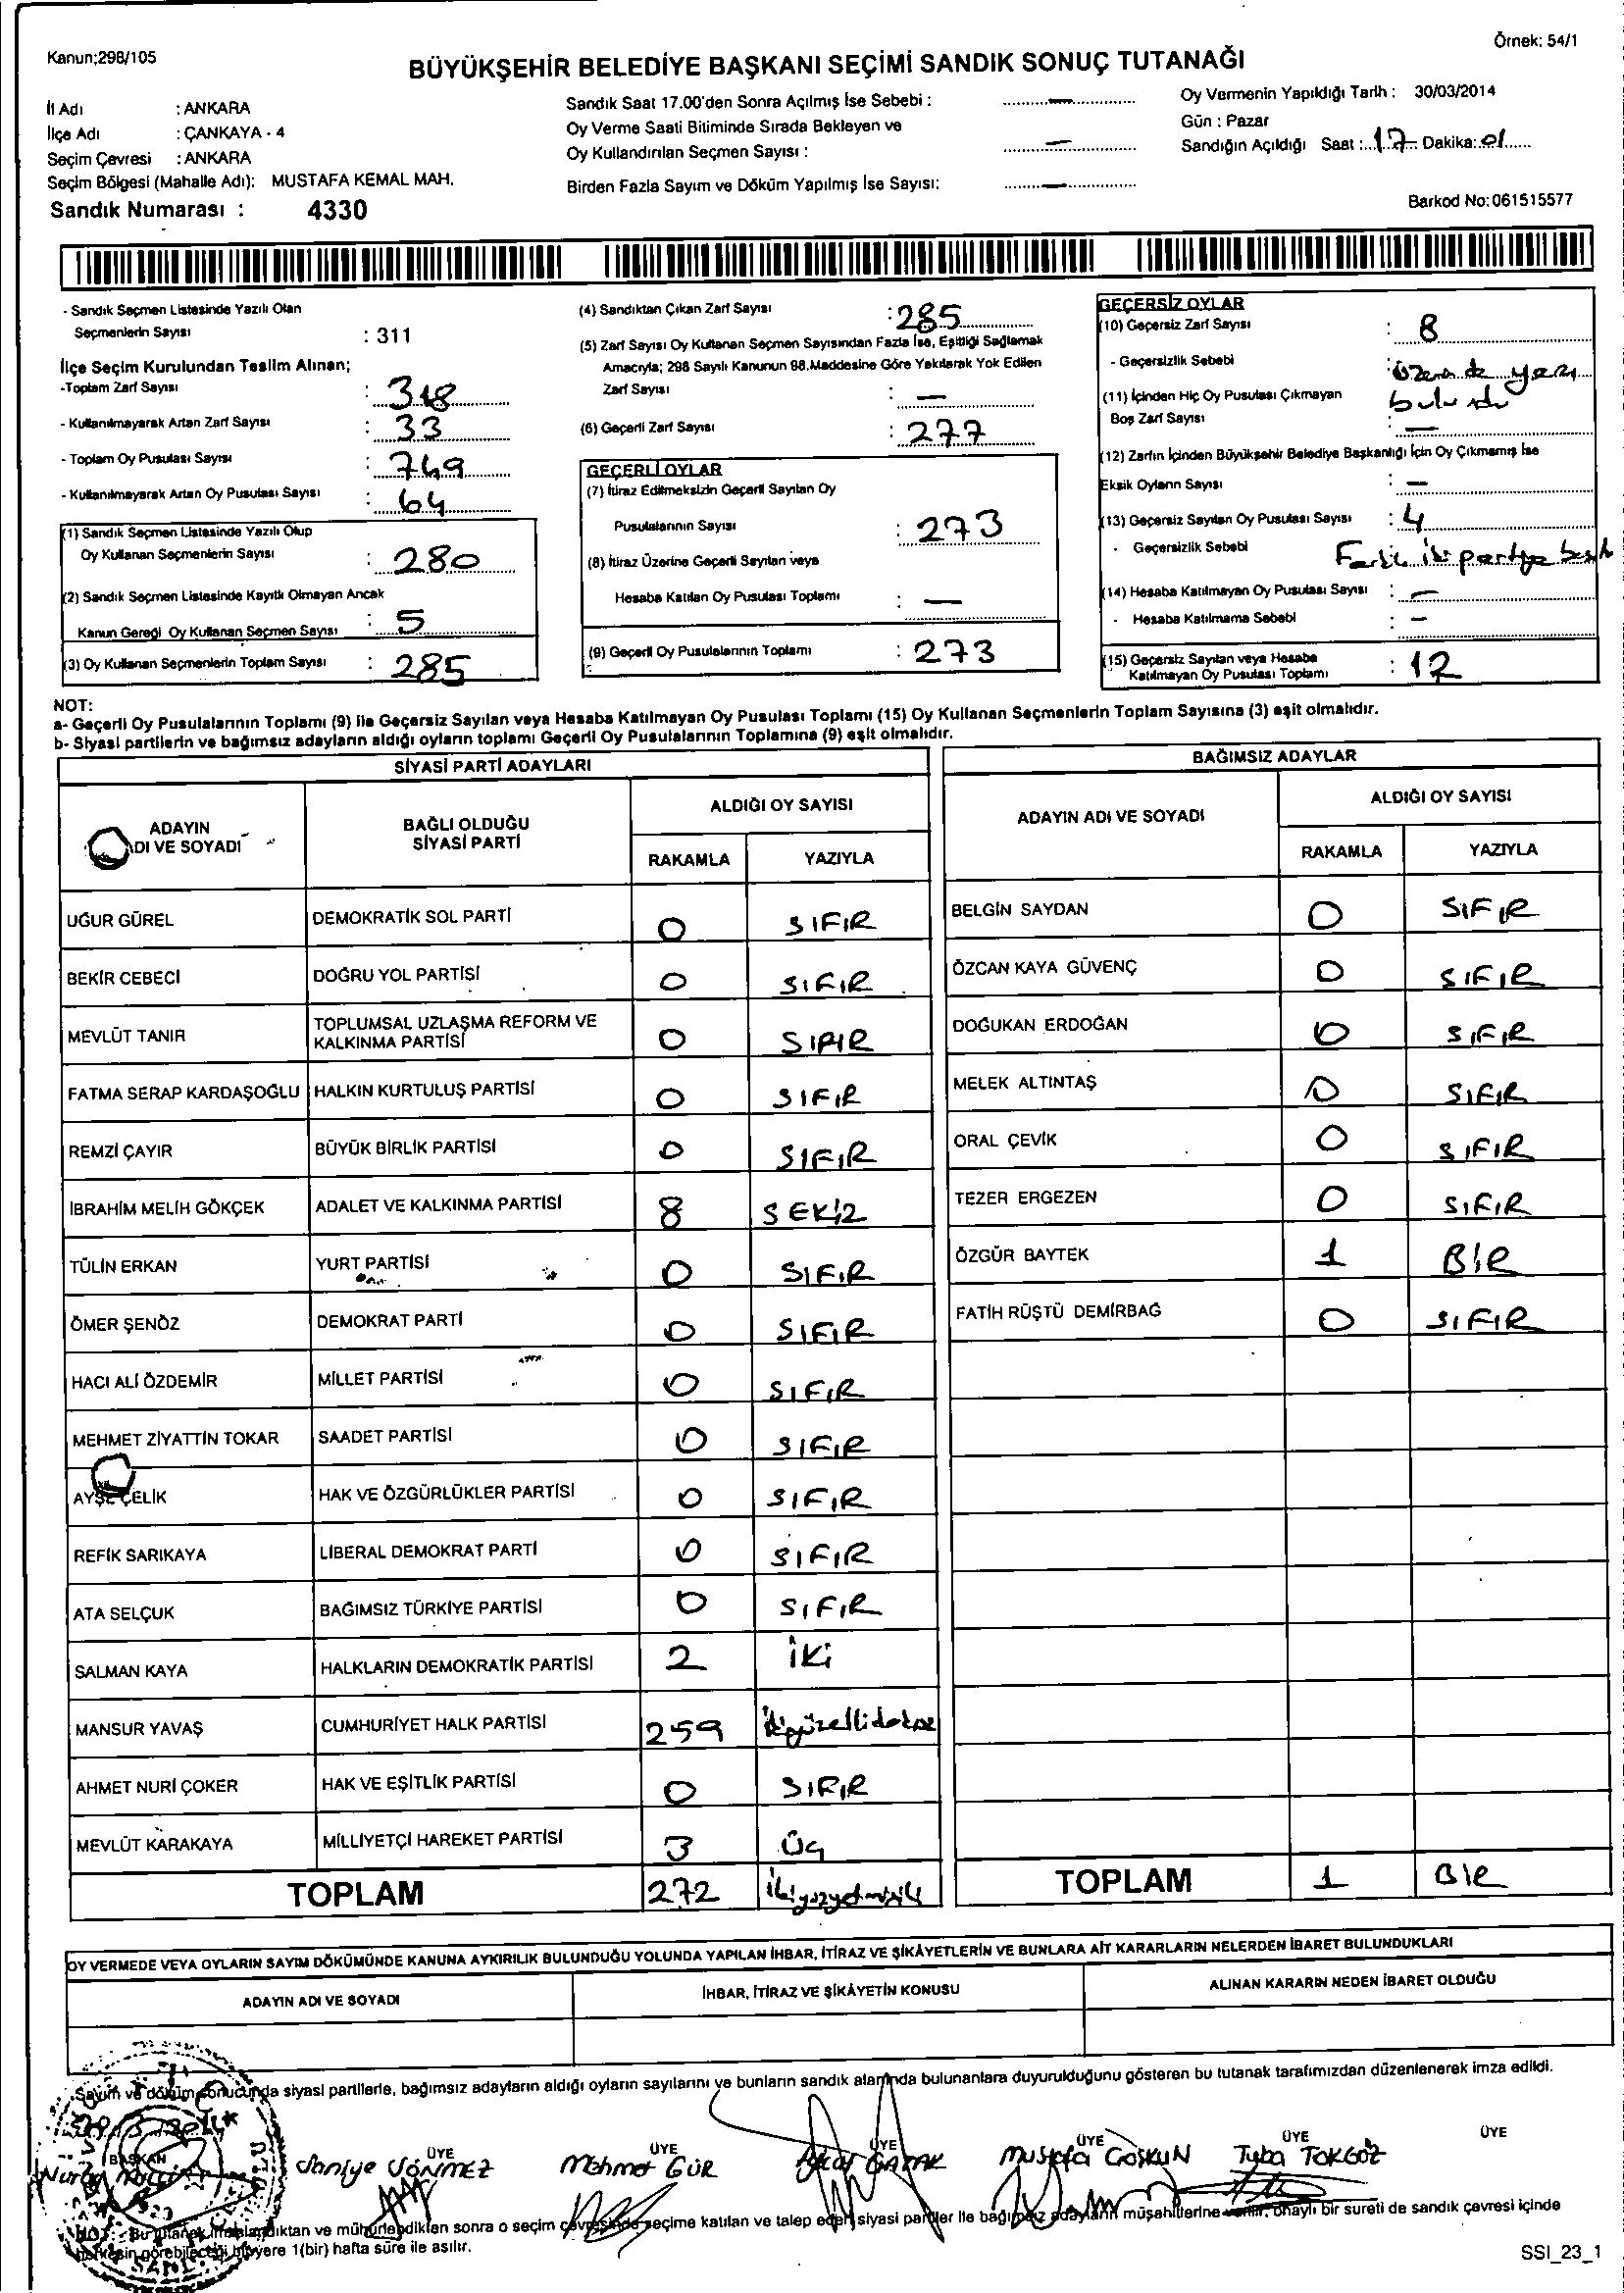 Kanun;298/105
Örnek: 54/1
BÜYÜKŞEHİR BELEDİYE BAŞKANI SEÇİMİ SANDIK SONUÇ TUTANAĞI
İl Adı : ANKARA
İlçe Adı : ÇANKAYA - 4
Seçim Çevresi : ANKARA
Seçim Bölgesi (Mahalle Adı): MUSTAFA KEMAL MAH.
Sandık Numarası : 4330
Sandık Saat 17.00'den Sonra Açılmış İse Sebebi : —
Oy Verme Saati Bitiminde Sırada Bekleyen ve
Oy Kullandırılan Seçmen Sayısı : —
Birden Fazla Sayım ve Döküm Yapılmış İse Sayısı: —
Oy Vermenin Yapıldığı Tarih : 30/03/2014
Gün : Pazar
Sandığın Açıldığı Saat : 17 Dakika: 01
Barkod No: 061515577
- Sandık Seçmen Listesinde Yazılı Olan
Seçmenlerin Sayısı : 311
İlçe Seçim Kurulundan Teslim Alınan;
-Toplam Zarf Sayısı : 318
- Kullanılmayarak Artan Zarf Sayısı : 33
- Toplam Oy Pusulası Sayısı : 749
- Kullanılmayarak Artan Oy Pusulası Sayısı : 64
(1) Sandık Seçmen Listesinde Yazılı Olup
Oy Kullanan Seçmenlerin Sayısı : 280
(2) Sandık Seçmen Listesinde Kayıtlı Olmayan Ancak
Kanun Gereği Oy Kullanan Seçmen Sayısı : 5
(3) Oy Kullanan Seçmenlerin Toplam Sayısı : 285
(4) Sandıktan Çıkan Zarf Sayısı : 285
(5) Zarf Sayısı Oy Kullanan Seçmen Sayısından Fazla İse, Eşitliği Sağlamak
Amacıyla; 298 Sayılı Kanunun 98.Maddesine Göre Yakılarak Yok Edilen
Zarf Sayısı : —
(6) Geçerli Zarf Sayısı : 277
GEÇERLİ OYLAR
(7) İtiraz Edilmeksizin Geçerli Sayılan Oy
Pusulalarının Sayısı : 273
(8) İtiraz Üzerine Geçerli Sayılan veya
Hesaba Katılan Oy Pusulası Toplamı : —
(9) Geçerli Oy Pusulalarının Toplamı : 273
GEÇERSİZ OYLAR
(10) Geçersiz Zarf Sayısı : 8
- Geçersizlik Sebebi : üzerinde yazı
bulundu
(11) İçinden Hiç Oy Pusulası Çıkmayan
Boş Zarf Sayısı : —
(12) Zarfın İçinden Büyükşehir Belediye Başkanlığı İçin Oy Çıkmamış İse
Eksik Oyların Sayısı : —
(13) Geçersiz Sayılan Oy Pusulası Sayısı : 4
- Geçersizlik Sebebi iki partiye
(14) Hesaba Katılmayan Oy Pusulası Sayısı : —
- Hesaba Katılmama Sebebi : —
(15) Geçersiz Sayılan veya Hesaba
Katılmayan Oy Pusulası Toplamı : 12
NOT:
a- Geçerli Oy Pusulalarının Toplamı (9) ile Geçersiz Sayılan veya Hesaba Katılmayan Oy Pusulası Toplamı (15) Oy Kullanan Seçmenlerin Toplam Sayısına (3) eşit olmalıdır.
b- Siyasi partilerin ve bağımsız adayların aldığı oyların toplamı Geçerli Oy Pusulalarının Toplamına (9) eşit olmalıdır.
SİYASİ PARTİ ADAYLARI
ADAYIN
ADI VE SOYADI
BAĞLI OLDUĞU
SİYASİ PARTİ
ALDIĞI OY SAYISI
RAKAMLA YAZIYLA
UĞUR GÜREL DEMOKRATİK SOL PARTİ 0 SIFIR
BEKİR CEBECİ DOĞRU YOL PARTİSİ 0 SIFIR
MEVLÜT TANIR TOPLUMSAL UZLAŞMA REFORM VE
KALKINMA PARTİSİ 0 SIFIR
FATMA SERAP KARDAŞOĞLU HALKIN KURTULUŞ PARTİSİ 0 SIFIR
REMZİ ÇAYIR BÜYÜK BİRLİK PARTİSİ 0 SIFIR
İBRAHİM MELİH GÖKÇEK ADALET VE KALKINMA PARTİSİ 8 SEKİZ
TÜLİN ERKAN YURT PARTİSİ 0 SIFIR
ÖMER ŞENÖZ DEMOKRAT PARTİ 0 SIFIR
HACI ALİ ÖZDEMİR MİLLET PARTİSİ 0 SIFIR
MEHMET ZİYATTİN TOKAR SAADET PARTİSİ 0 SIFIR
AYŞE ÇELİK HAK VE ÖZGÜRLÜKLER PARTİSİ 0 SIFIR
REFİK SARIKAYA LİBERAL DEMOKRAT PARTİ 0 SIFIR
ATA SELÇUK BAĞIMSIZ TÜRKİYE PARTİSİ 0 SIFIR
SALMAN KAYA HALKLARIN DEMOKRATİK PARTİSİ 2 İKİ
MANSUR YAVAŞ CUMHURİYET HALK PARTİSİ 259 ikiyüzellidokuz
AHMET NURİ ÇOKER HAK VE EŞİTLİK PARTİSİ 0 SIFIR
MEVLÜT KARAKAYA MİLLİYETÇİ HAREKET PARTİSİ 3 ÜÇ
TOPLAM 272 ikiyüzyetmişiki
BAĞIMSIZ ADAYLAR
ADAYIN ADI VE SOYADI
ALDIĞI OY SAYISI
RAKAMLA YAZIYLA
BELGİN SAYDAN 0 SIFIR
ÖZCAN KAYA GÜVENÇ 0 SIFIR
DOĞUKAN ERDOĞAN 0 SIFIR
MELEK ALTINTAŞ 0 SIFIR
ORAL ÇEVİK 0 SIFIR
TEZER ERGEZEN 0 SIFIR
ÖZGÜR BAYTEK 1 BİR
FATİH RÜŞTÜ DEMİRBAĞ 0 SIFIR
TOPLAM 1 BİR
OY VERMEDE VEYA OYLARIN SAYIM DÖKÜMÜNDE KANUNA AYKIRILIK BULUNDUĞU YOLUNDA YAPILAN İHBAR, İTİRAZ VE ŞİKÂYETLERİN VE BUNLARA AİT KARARLARIN NELERDEN İBARET BULUNDUKLARI
ADAYIN ADI VE SOYADI
İHBAR, İTİRAZ VE ŞİKÂYETİN KONUSU
ALINAN KARARIN NEDEN İBARET OLDUĞU
Sayım ve döküm sonucunda siyasi partilerle, bağımsız adayların aldığı oyların sayılarını ve bunların sandık alanında bulunanlara duyurulduğunu gösteren bu tutanak tarafımızdan düzenlenerek imza edildi.
BAŞKAN ÜYE ÜYE ÜYE ÜYE ÜYE ÜYE
Saniye SÖNMEZ Mehmet GÜR Mustafa COŞKUN Tuba TOKGÖZ
NOT: Bu tutanak imzalandıktan ve mühürlendikten sonra o seçim çevresinde seçime katılan ve talep eden siyasi partiler ile bağımsız adayların müşahitlerine verilir, onaylı bir sureti de sandık çevresi içinde
herkesin görebileceği bir yere 1(bir) hafta süre ile asılır.
SSI_23_1